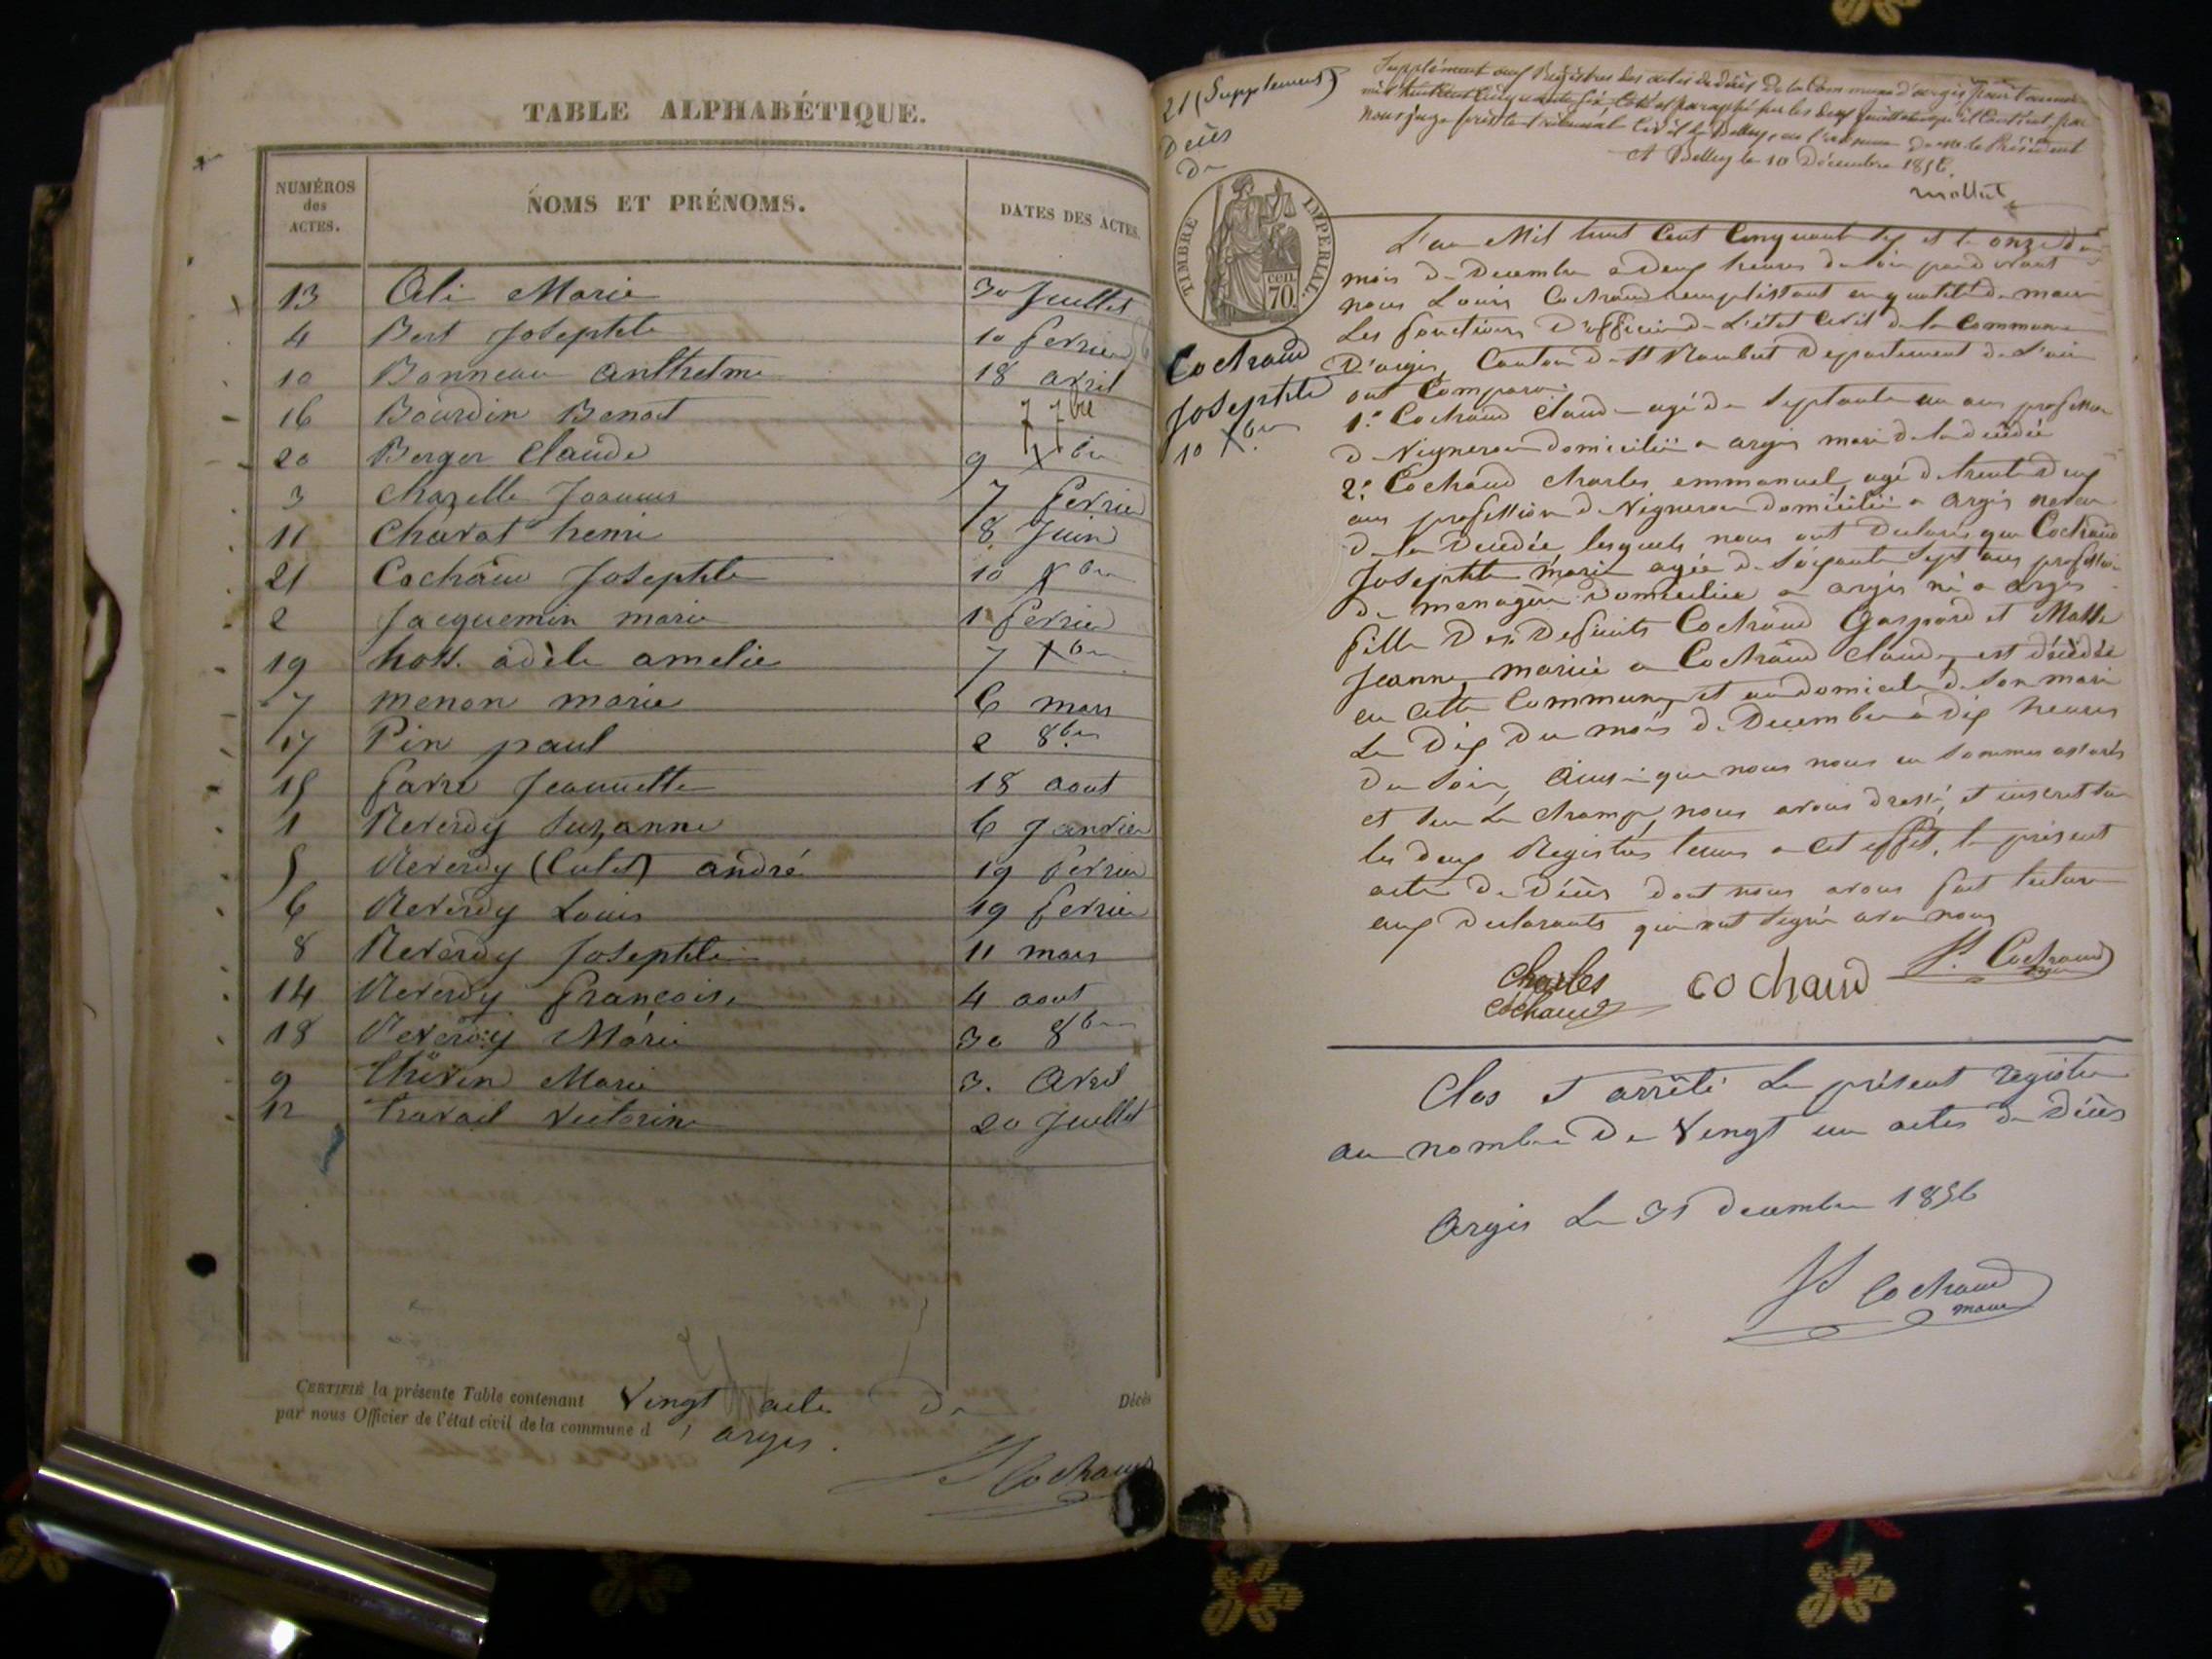 TABLE ALPHABÉTIQUE.
NUMÉROS des ACTES.
NOMS ET PRÉNOMS.
DATES DES ACTES.
13 Marie 30 Juillet
4 Best Josephte 10 fevrier
10 Bonneau anthelme 18 avril
16 Bourdin Benoit 7 7bre
20 Berger Claude 9 Xbre
3 Chazelle 7 fevrier
11 Charat henri 8 Juin
21 Cochaud Josephte 10 Xbre
2 Jacquemin marie 1 fevrier
19 adèle amelie 7 Xbre
7 menon marie 6 mars
17 Pin paul 2 8bre
15 favre Jeannette 18 aout
1 Reverdy Suzanne 6 Janvier
5 Reverdy (Culet) andré 19 fevrier
6 Reverdy Louis 19 fevrier
8 Reverdy Josephte 11 mars
14 Reverdy francoise 4 aout
18 Reverdy Marie 30 8bre
9 Thévin Marie 3. Avril
12 travail victorine 20 Juillet
CERTIFIÉ la présente Table contenant Vingt acte De Décès
par nous Officier de l'état civil de la commune d'argis.
Cochaud
21 (Supplement)
Décès
De
Cochaud
Josephte
10 Xbre
TIMBRE IMPERIAL.
cen. 70.
Supplément aux Registres des actes de décès De la Commune d'argis pour l'année
mil huit cent cinquante six, Coté et paraphé par les deux feuillets qu'il contient par
nous juge près le tribunal Civil de Belley, en l'absence de Mr le Président
A Belley le 10 Décembre 1856.
mollet
L'an Mil huit Cent Cinquante six et le onze du
mois de Decembre a deux heures du soir pardevant
nous Louis Cochaud remplissant en qualité de maire
Les fonctions D'officier de L'état Civil de la Commune
D'argis, Canton de St Rambert Departement de L'ain
ont Comparu
1.° Cochaud Claude agé de septante un ans profession
de Vigneron domicilié a argis mari de la décédée
2.° Cochaud charles emmanuel, agé de trente deux
ans profession de Vigneron Domicilié a argis neveu
de la Décédée, lesquels nous ont Declaré que Cochaud
Josephte marie agée de soixante sept ans profession
de menagère Domiciliée a argis né a argis
fille Des Defunts Cochaud Gaspard et
Jeanne, mariée a Cochaud Claude, est décédée
en cette Commune, et au domicile de son mari
Le Dix Du mois de Decembre a dix heures
Du soir, Ainsi que nous nous en sommes assurés
et sur Le champ, nous avons dressé, et inscrit sur
les deux Registres tenus a cet effet, le présent
acte De Décès dont nous avons fait lecture
aux declarants qui ont signé avec nous
charles cochaud cochaud Cochaud maire
Clos et arrêté Le présent registre
au nombre De Vingt un actes de Décès
Argis Le 31 Decembre 1856
Cochaud
maire